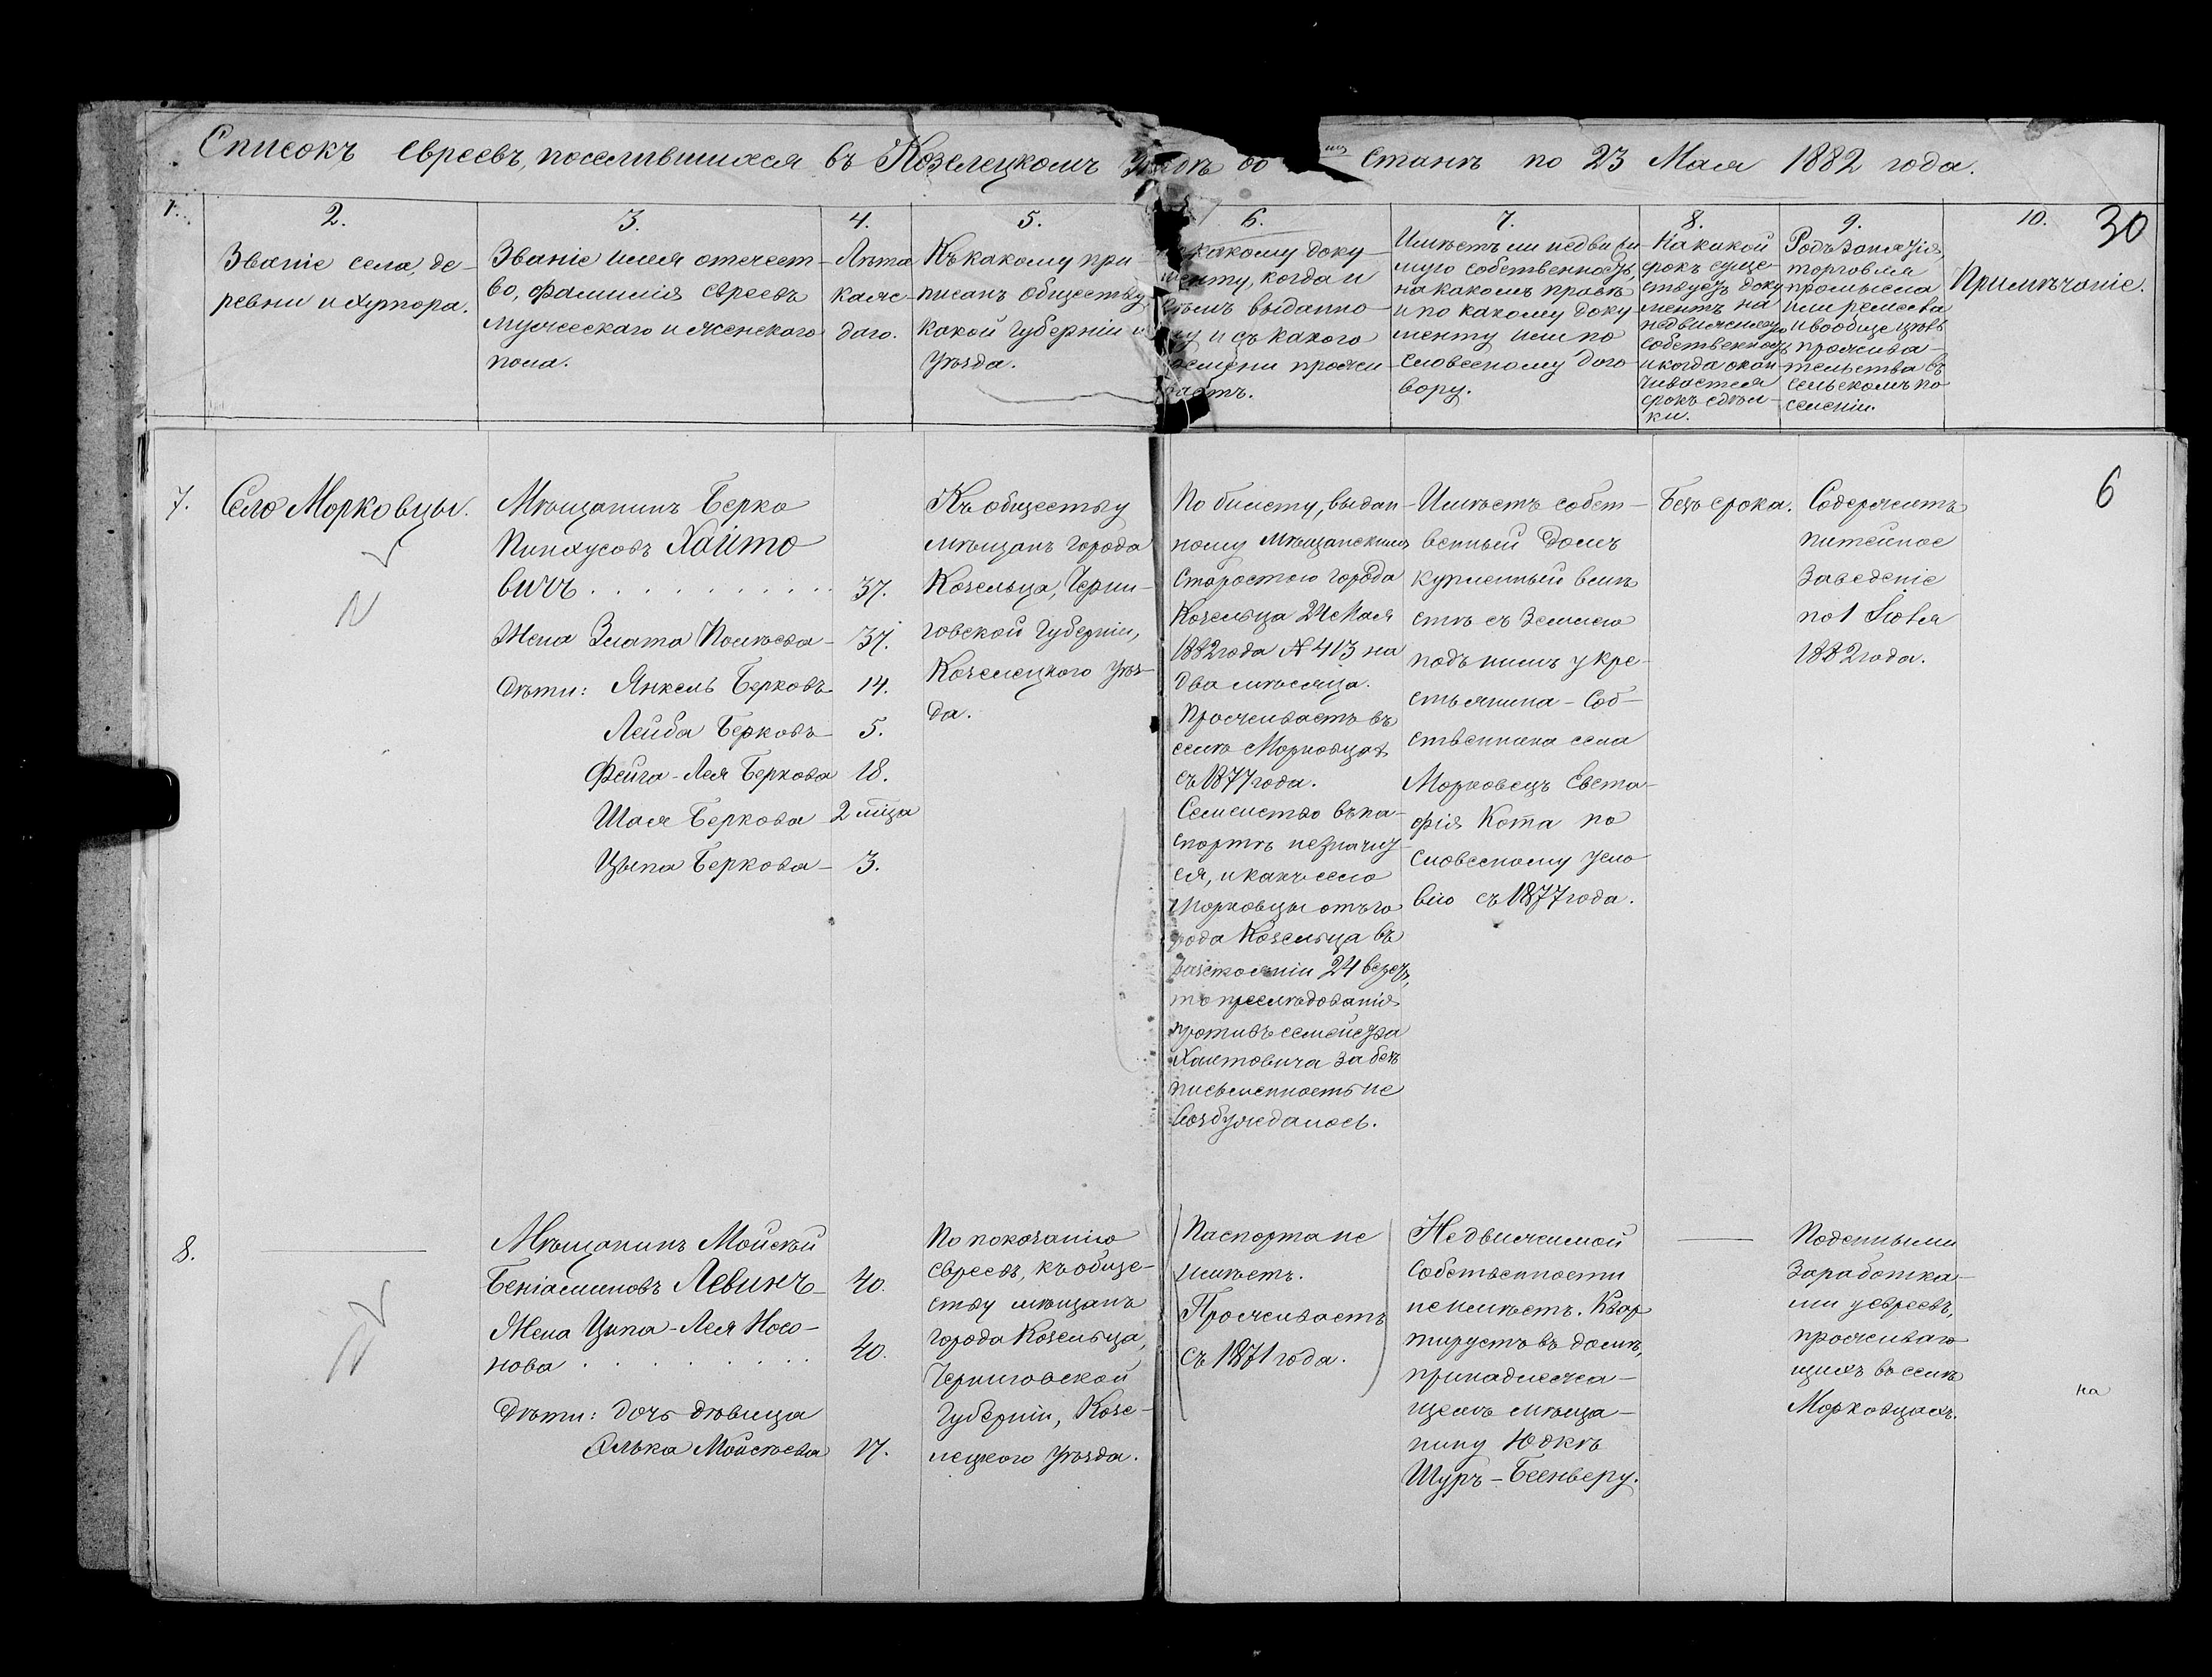 Списокъ евреевъ, поселившихся въ Козелецкомъ во станѣ по 23 Мая 1882 года.
1.
2.
Званіе села, де-
ревни и хутора.
3.
Званіе имя отечест-
во, фамилія евреевъ
мужескаго и женскаго
пола.
4.
Лѣта
каж-
даго.
5.
Къ какому при-
писанъ обществу
какой губерніи и
уѣзда.
6.
какому доку-
менту, когда и
кѣмъ выданно-
му и съ какого
времени прожи-
ваетъ.
7.
Имѣетъ ли недвижи-
мую собственность,
на какомъ правѣ
и по какому доку-
менту или по
словесному дого-
вору.
8.
На какой
срокъ суще-
ствуетъ доку
ментъ на
недвижимую
собственность
и когда окан-
чивается
срокъ сдѣл-
ки.
9.
Родъ занятія,
торговля
промысла
или ремесла
и вообще цѣль
прожива-
тельства въ
сельскомъ по
селеніи.
10.
Примѣчаніе.
30
7.
Село Морковцы.
N
Мѣщанинъ Берко
Пинхусовъ Хайто
вичъ . . . . . . . . . . 37.
Жена Злата - 37.
Дѣти: Янкель Берковъ 14.
Лейба Берковъ 5.
Фейга-Лея Беркова 18.
Шая Беркова 2 мѣца
Цыпа Беркова - 3.
Къ обществу
мѣщанъ города
Козельца, Черни-
говской Губерніи,
Козелецкаго уѣз-
да.
По билету, выдан-
ному Мѣщанскимъ
Старостою города
Козельца 24 Мая
1882 года № 413 на
два мѣсяца.
Проживаетъ въ
селѣ Морковцахъ
съ 1877 года.
Семейство въ па-
спортѣ незначит
ся, и какъ село
Морковцы отъ го
рода Козельца въ
разстояніи 24 верст,
то преслѣдованія
противъ семейства
Хаитовича за безъ
письменность не
возбуждалось.
Имѣетъ собст-
венный домъ
купленный вмѣ
стѣ съ землею
подъ нимъ у кре-
стьянина-Соб-
ственника села
Морковецъ Евста-
фія Кота по
словесному усло
вію съ 1877 года.
Безъ срока.
Содержитъ
питейное
заведеніе
по 1 Іюля
1882 года.
6
8.
N
Мѣщанинъ Мойсѣй
Беніаминовъ Левинъ - 40.
Жена Ципа-Лея Носо-
нова . . . . . . . . . 40.
Дѣти: дочь дѣвица
Элька Мойсѣева 17.
По показанію
евреевъ, къ обще-
ству мѣщанъ
города Козельца,
Черниговской
Губерніи, Козе-
лецкаго уѣзда.
Паспорта не
имѣетъ.
Проживаетъ
съ 1871 года.
Недвижимой
Собственности
не имѣетъ. Квар
тируетъ въ домѣ,
принадлежа-
щемъ мѣща-
нину Юдкѣ
Шуръ-Беенверу.
Поденными
заработка-
ми у евреевъ,
проживаю
щихъ въ селѣ
Морковцахъ.
на